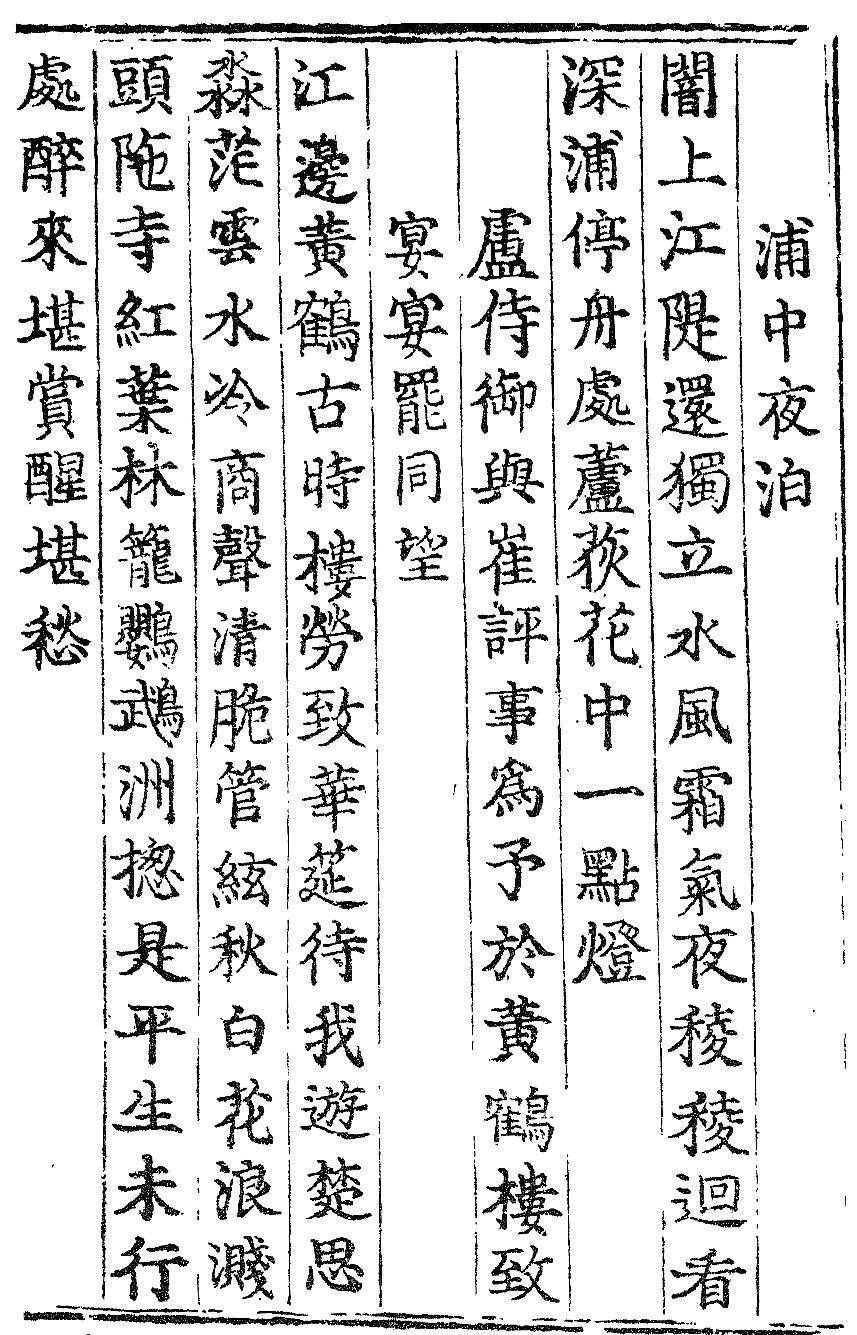 浦中夜泊
闇上江隄還獨立水風霜氣夜稜稜迴看
深浦停舟處蘆荻花中一點燈
盧侍御與崔評事爲予於黄鶴樓致
宴宴罷同望
江邊黃鶴古時樓勞致華筵待我遊楚思
淼茫雲水冷商聲清脆管絃秋白花浪濺
頭陁寺紅葉林籠鸚鵡洲揔是平生未行
處醉來堪賞醒堪愁